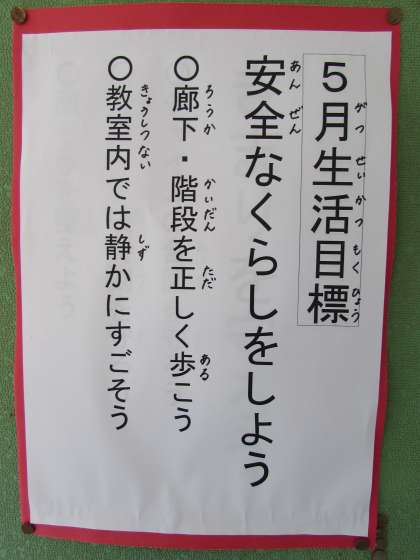 5月生活目標
安全なくらしをしよう
○廊下・階段を正しく歩こう
○教室内では静かにすごそう
がつ せいかつ もくひょう
あんぜん
ろうか かいだん ただ ある
きょうしつない しず